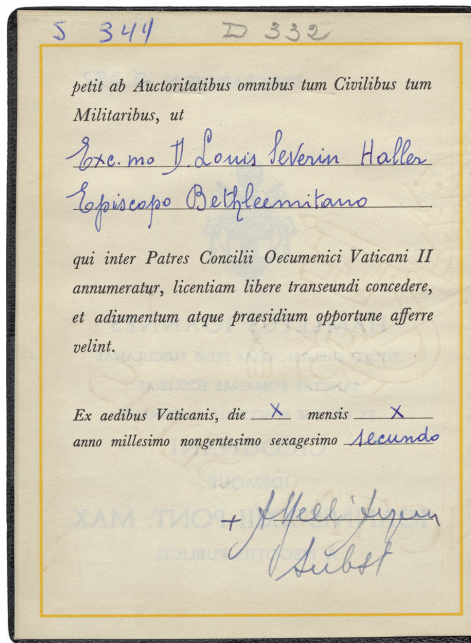 S 344 D 332
petit ab Auctoritatibus omnibus tum Civilibus tum
Militaribus, ut
Exc.mo D. Louis Severin Haller
Episcopo Bethleemitano
qui inter Patres Concilii Oecumenici Vaticani II
annumeratur, licentiam libere transeundi concedere,
et adiumentum atque praesidium opportune afferre
velint.
Ex aedibus Vaticanis, die X mensis X
anno millesimo nongentesimo sexagesimo secundo
+
Subst